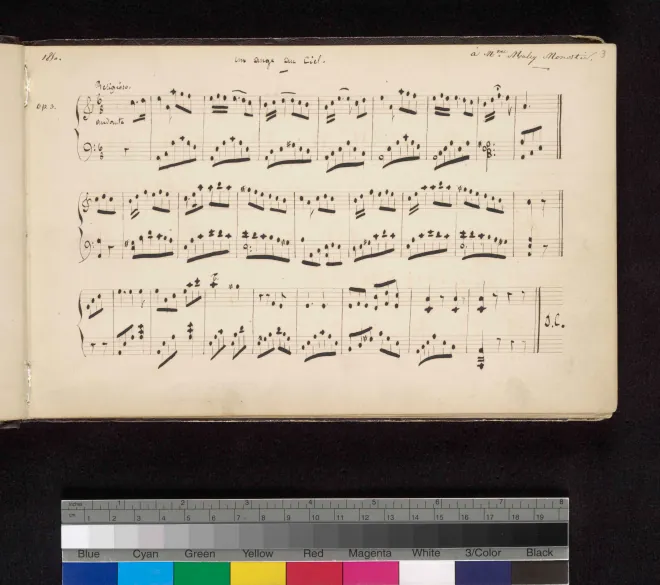 un ange au Ciel.
à Mme Maley Monastié. 3
Religioso.
op 3.
Andante
D.C.
1 2 3 4 5 6 7 8
cm 1 2 3 4 5 6 7 8 9 10 11 12 13 14 15 16 17 18 19
Blue Cyan Green Yellow Red Magenta White 3/Color Black